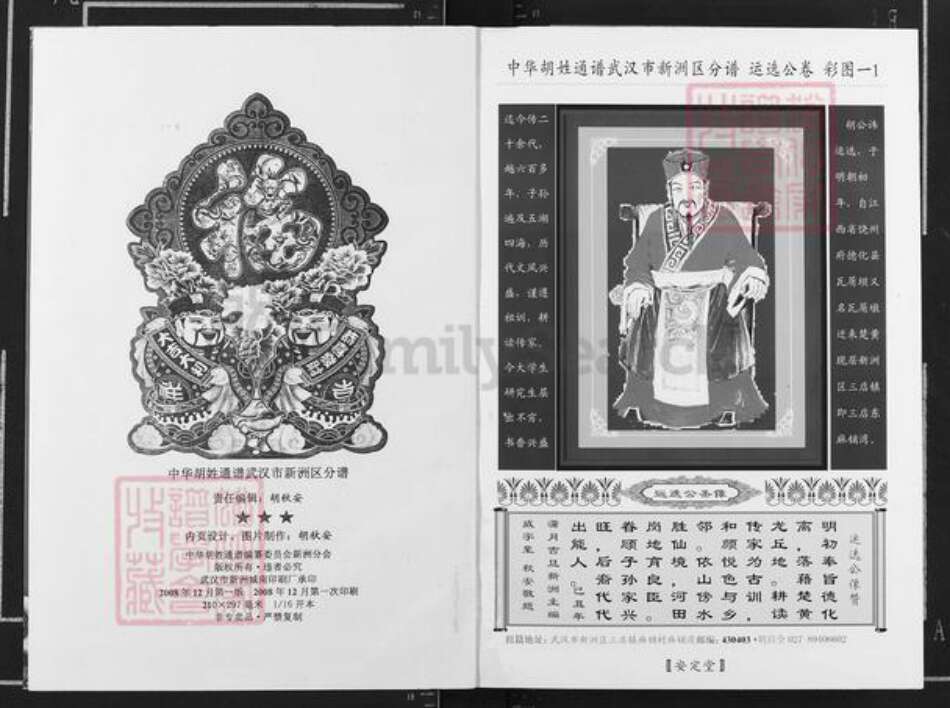 福
大吉大利
吉
中华胡姓通谱武汉市新洲区分谱
责任编辑：胡秋安
★ ★ ★
内页设计、图片制作：胡秋安
中华胡姓通谱编纂委员会新洲分会
版权所有·违者必究
武汉市新洲城南印刷厂承印
2008年12月第一版 2008年12月第一次印刷
210×297毫米 1/16开本
非卖品·严禁复制
中华胡姓通谱武汉市新洲区分谱 运选公卷 彩图一1
胡公讳
运选，于
明朝初
年，自江
西省饶州
府德化县
瓦屑坝又
名瓦屑墩
迁来楚黄
现居新洲
区三店镇
即三店东
麻铺湾，
迄今传二
十余代，
越六百多
年，子孙
遍及五湖
四海，历
代文风兴
盛，谨遵
祖训，耕
读传家，
今大学生
研究生层
出不穷，
书香兴盛
运选公圣像
运选公像赞
明初奉旨德化
离丘，落楚黄
龙为地耕读
传家，古训
和颜悦色与乡
邻依山傍水
胜仙境
岗地育良田
眷顾子孙家兴
旺，后裔代代
出能人。
己丑年
蒲月吉旦新洲主编
咸字辈 秋安敬题
祖籍地址：武汉市新洲区三店镇麻铺村麻铺湾邮编：430403
〖安定堂〗